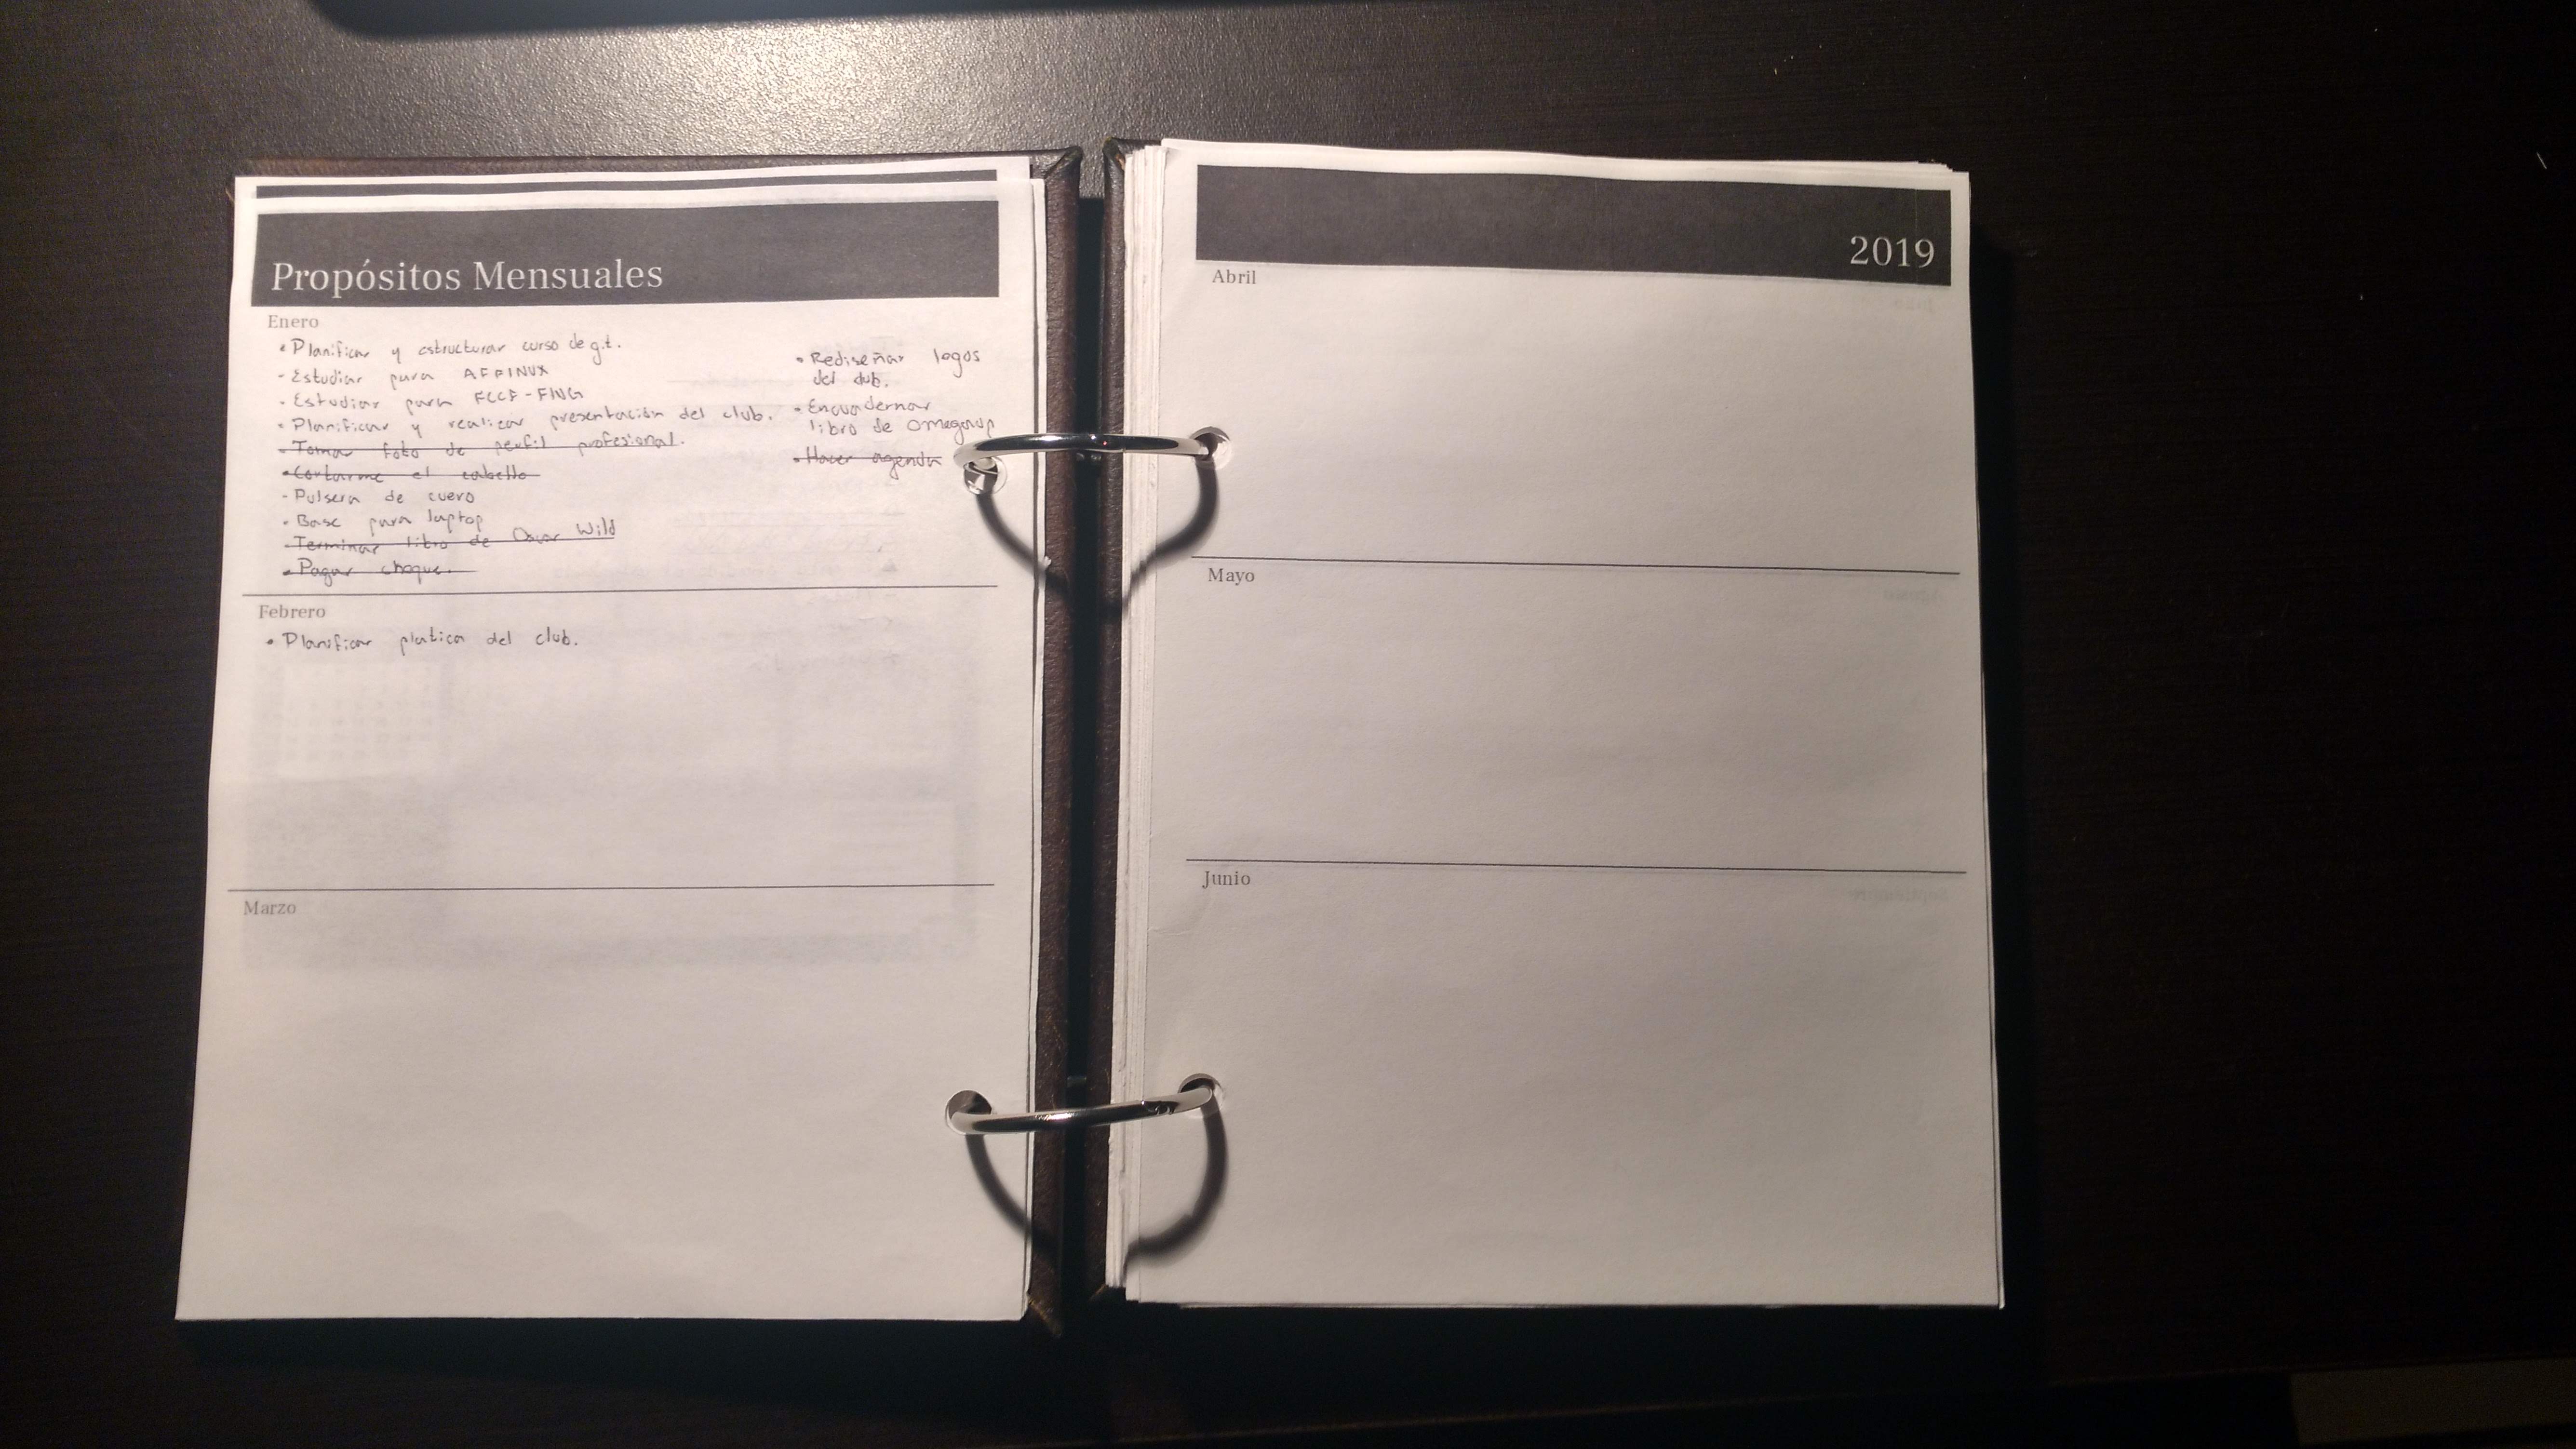 Propósitos Mensuales
Enero
• Planificar y estructurar curso de git.
- Estudiar para AFPINUX
- Estudiar para FCCF-FING
• Planificar y realizar presentación del club.
• Tomar foto de perfil profesional.
• Cortarme el cabello
- Pulsera de cuero
• Base para laptop
• Terminar libro de Oscar Wild
• Pagar choque.
• Rediseñar logos
del club.
• Encuadernar
libro de Omegaup
• Hacer agenda
Febrero
• Planificar platica del club.
Marzo
2019
Abril
Mayo
Junio